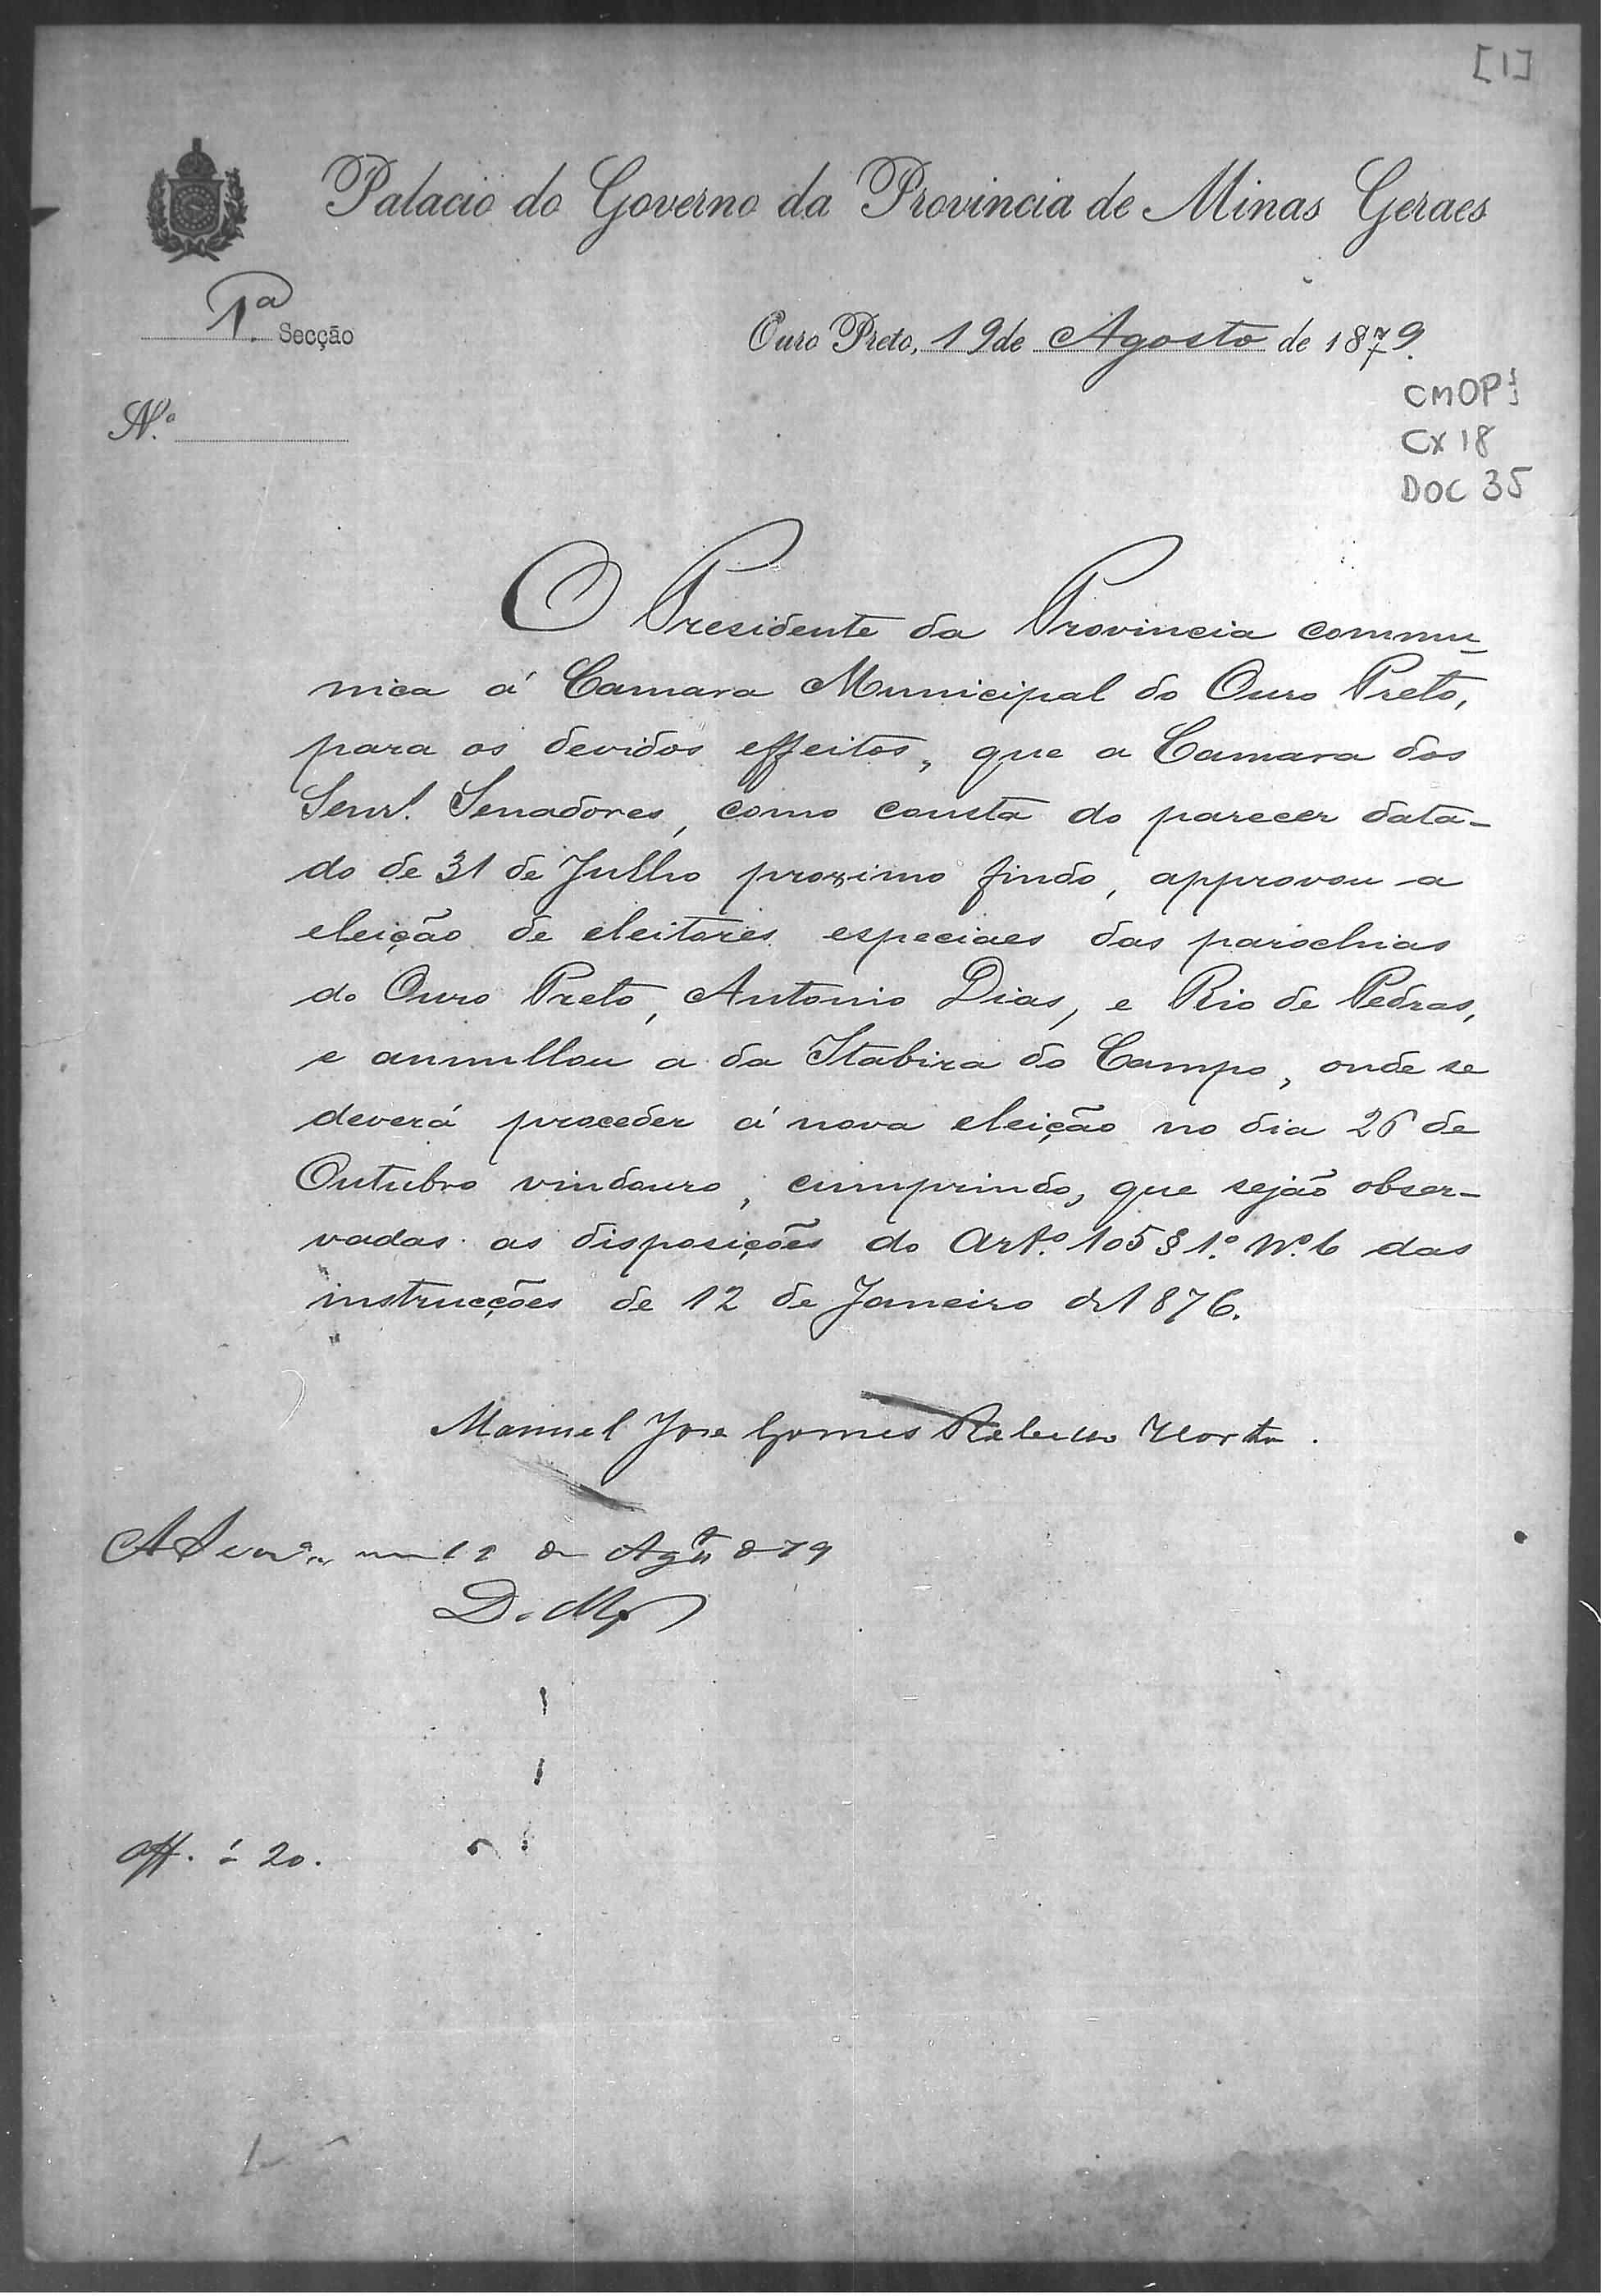 [1]
Palacio do Governo da Provincia de Minas Geraes
1ª Secção
Ouro Preto, 19 de Agosto de 1879.
N.º
CMOP
Cx 18
DOC 35
O Presidente da Provincia commu-
nica á Camara Municipal do Ouro Preto,
para os devidos effeitos, que a Camara dos
Senr.s Senadores, como consta do parecer data-
do de 31 de Julho proximo findo, approvou a
eleição de eleitores especiaes das parochias
do Ouro Preto, Antonio Dias, e Rio de Pedras,
e annullou a da Itabira do Campo, onde se
deverá proceder á nova eleição no dia 26 de
Outubro vindouro, cumprindo, que sejão obser-
vadas as disposições do Art.º 105 § 1.º Nº 6 das
instrucções de 12 de Janeiro de 1876.
Manuel Jose Gomes Rebello Horta.
de Ag.to de 79
Off. á 20.